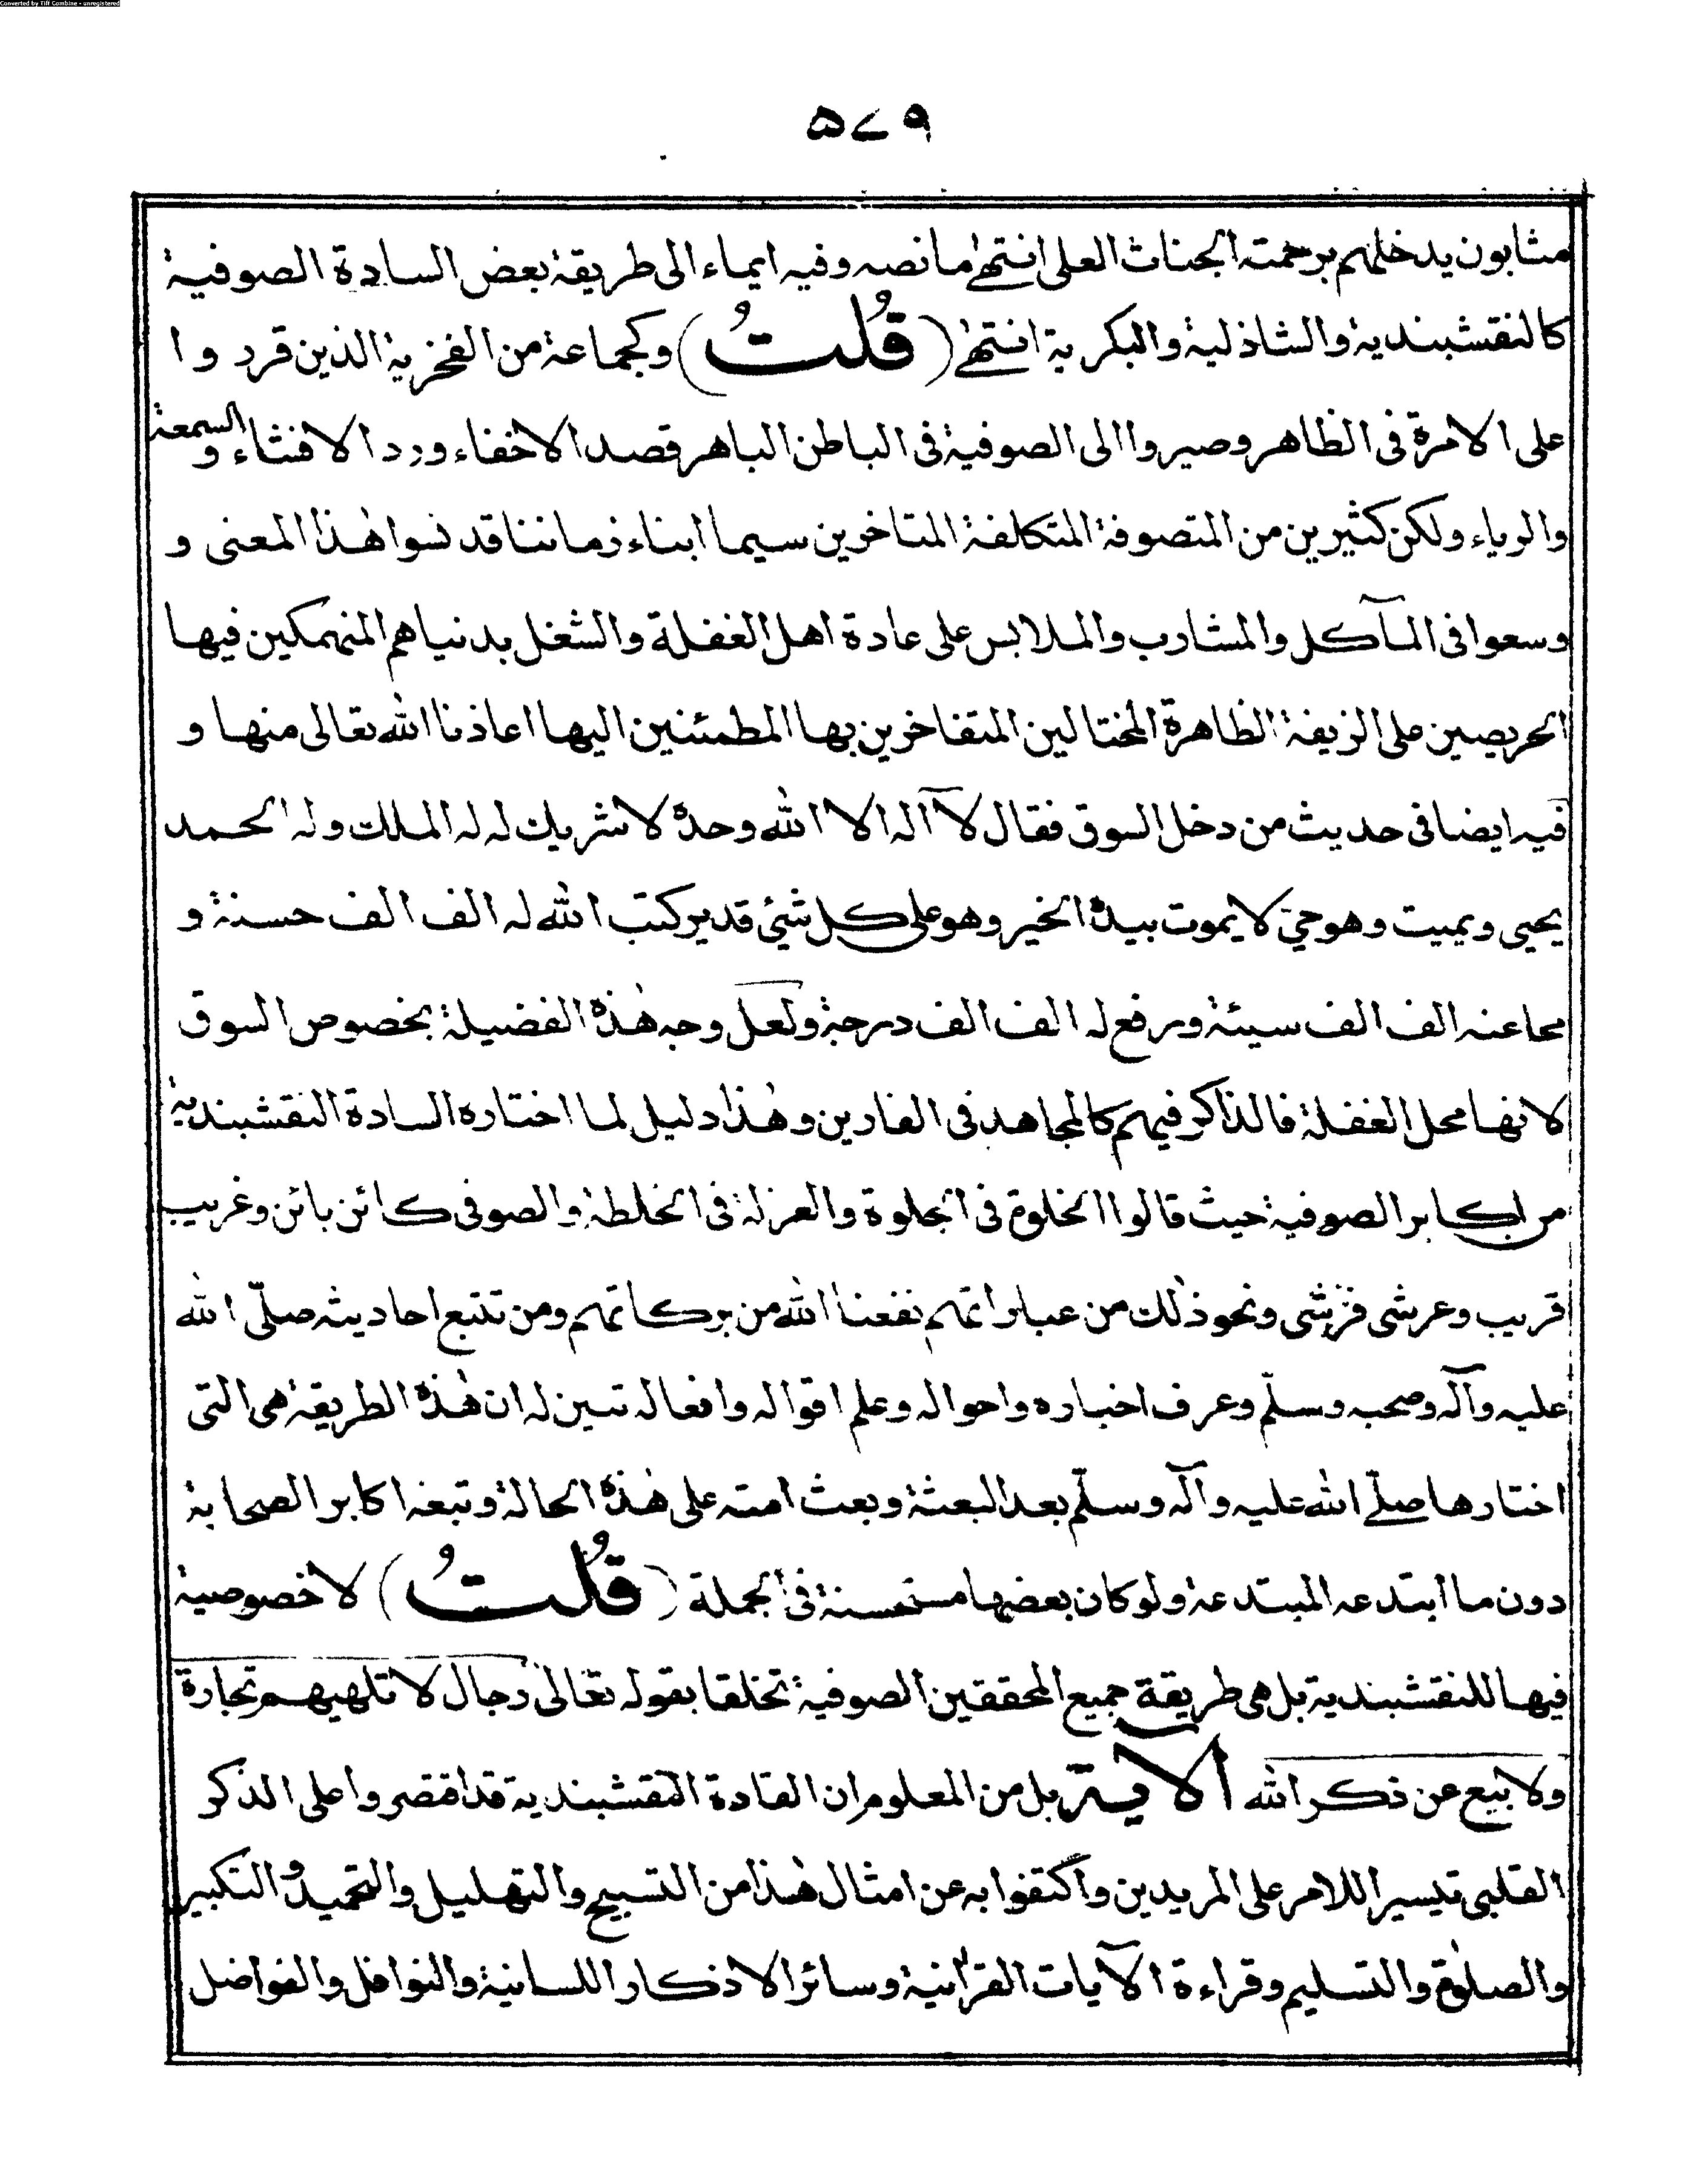 Converted by Tiff Combine - unregistered
۵۷۹
مثابون يدخلهم برحمته الجنات العلى انتهىٰ ما نصه وفيه ايماء الى طريقة بعض السادة الصوفية
كالنقشبندية والشاذلية والبكرية انتهىٰ (قُلتُ) وكجماعة من الفخرية الذين قرروا
على الامرة فى الظاهر وصيروا الى الصوفية فى الباطن الباهر قصد الاخفاء ورد الافشاء والسمعة
والرياء ولكن كثيرين من المتصوفة المتكلفة المتاخرين سيما ابناء زماننا قد نسوا هٰذا المعنى و
وسعوا فى المآكل والمشارب والملابس على عادة اهل الغفلة والشغل بدنياهم المنهمكين فيها
الحريصين على الزيفة الظاهرة المختالين المتفاخرين بها المطمئنين اليها اعاذنا الله تعالى منها و
فيه ايضا فى حديث من دخل السوق فقال لآ اله الا الله وحدهٗ لا شريك له له الملك وله الحمد
يحيى ويميت وهو حيّ لا يموت بيدهٖ الخير وهو على كل شيئ قدير كتب الله له الف الف حسنة و
محا عنه الف الف سيئة ورفع له الف الف درجة ولعل وجه هٰذهٖ الفضيلة بخصوص السوق
لانها محل الغفلة فالذاكر فيهم كالمجاهد فى الفارين وهٰذا دليل لما اختاره السادة النقشبندية
من اكابر الصوفية حيث قالوا الخلوة فى الجلوة والعزلة فى الخلطة والصوفى كائن بائن وغريب
قريب وعرشى فرشى ونحو ذٰلك من عباراتهم نفعنا الله من بركاتهم ومن تتبع احاديثه صلّى الله
عليه وآله وصحبه وسلّم وعرف اخباره واحواله وعلم اقواله وافعاله تبين له ان هٰذهٖ الطريقة هى التى
اختارها صلّے الله عليه وآله وسلّم بعد البعثة وبعث امته على هٰذهٖ الحالة وتبعه اكابر الصحابة
دون ما ابتدعه المبتدعة ولو كان بعضها مستحسنة فى الجملة (قُلتُ) لا خصوصية
فيها للنقشبندية بل هى طريقة جميع المحققين الصوفية تخلقا بقوله تعالىٰ رجال لا تلهيهم تجارة
ولا بيع عن ذكر الله الاية بل من المعلوم ان القادة النقشبندية قد اقتصروا على الذكر
القلبى تيسيرا للامر على المريدين واكتفوا به عن امثال هٰذا من التسبيح والتهليل والتحميد والتكبير
والصلوٰة والتسليم وقراءة الآيات القرآنية وسائر الاذكار اللسانية والنوافل والفواضل